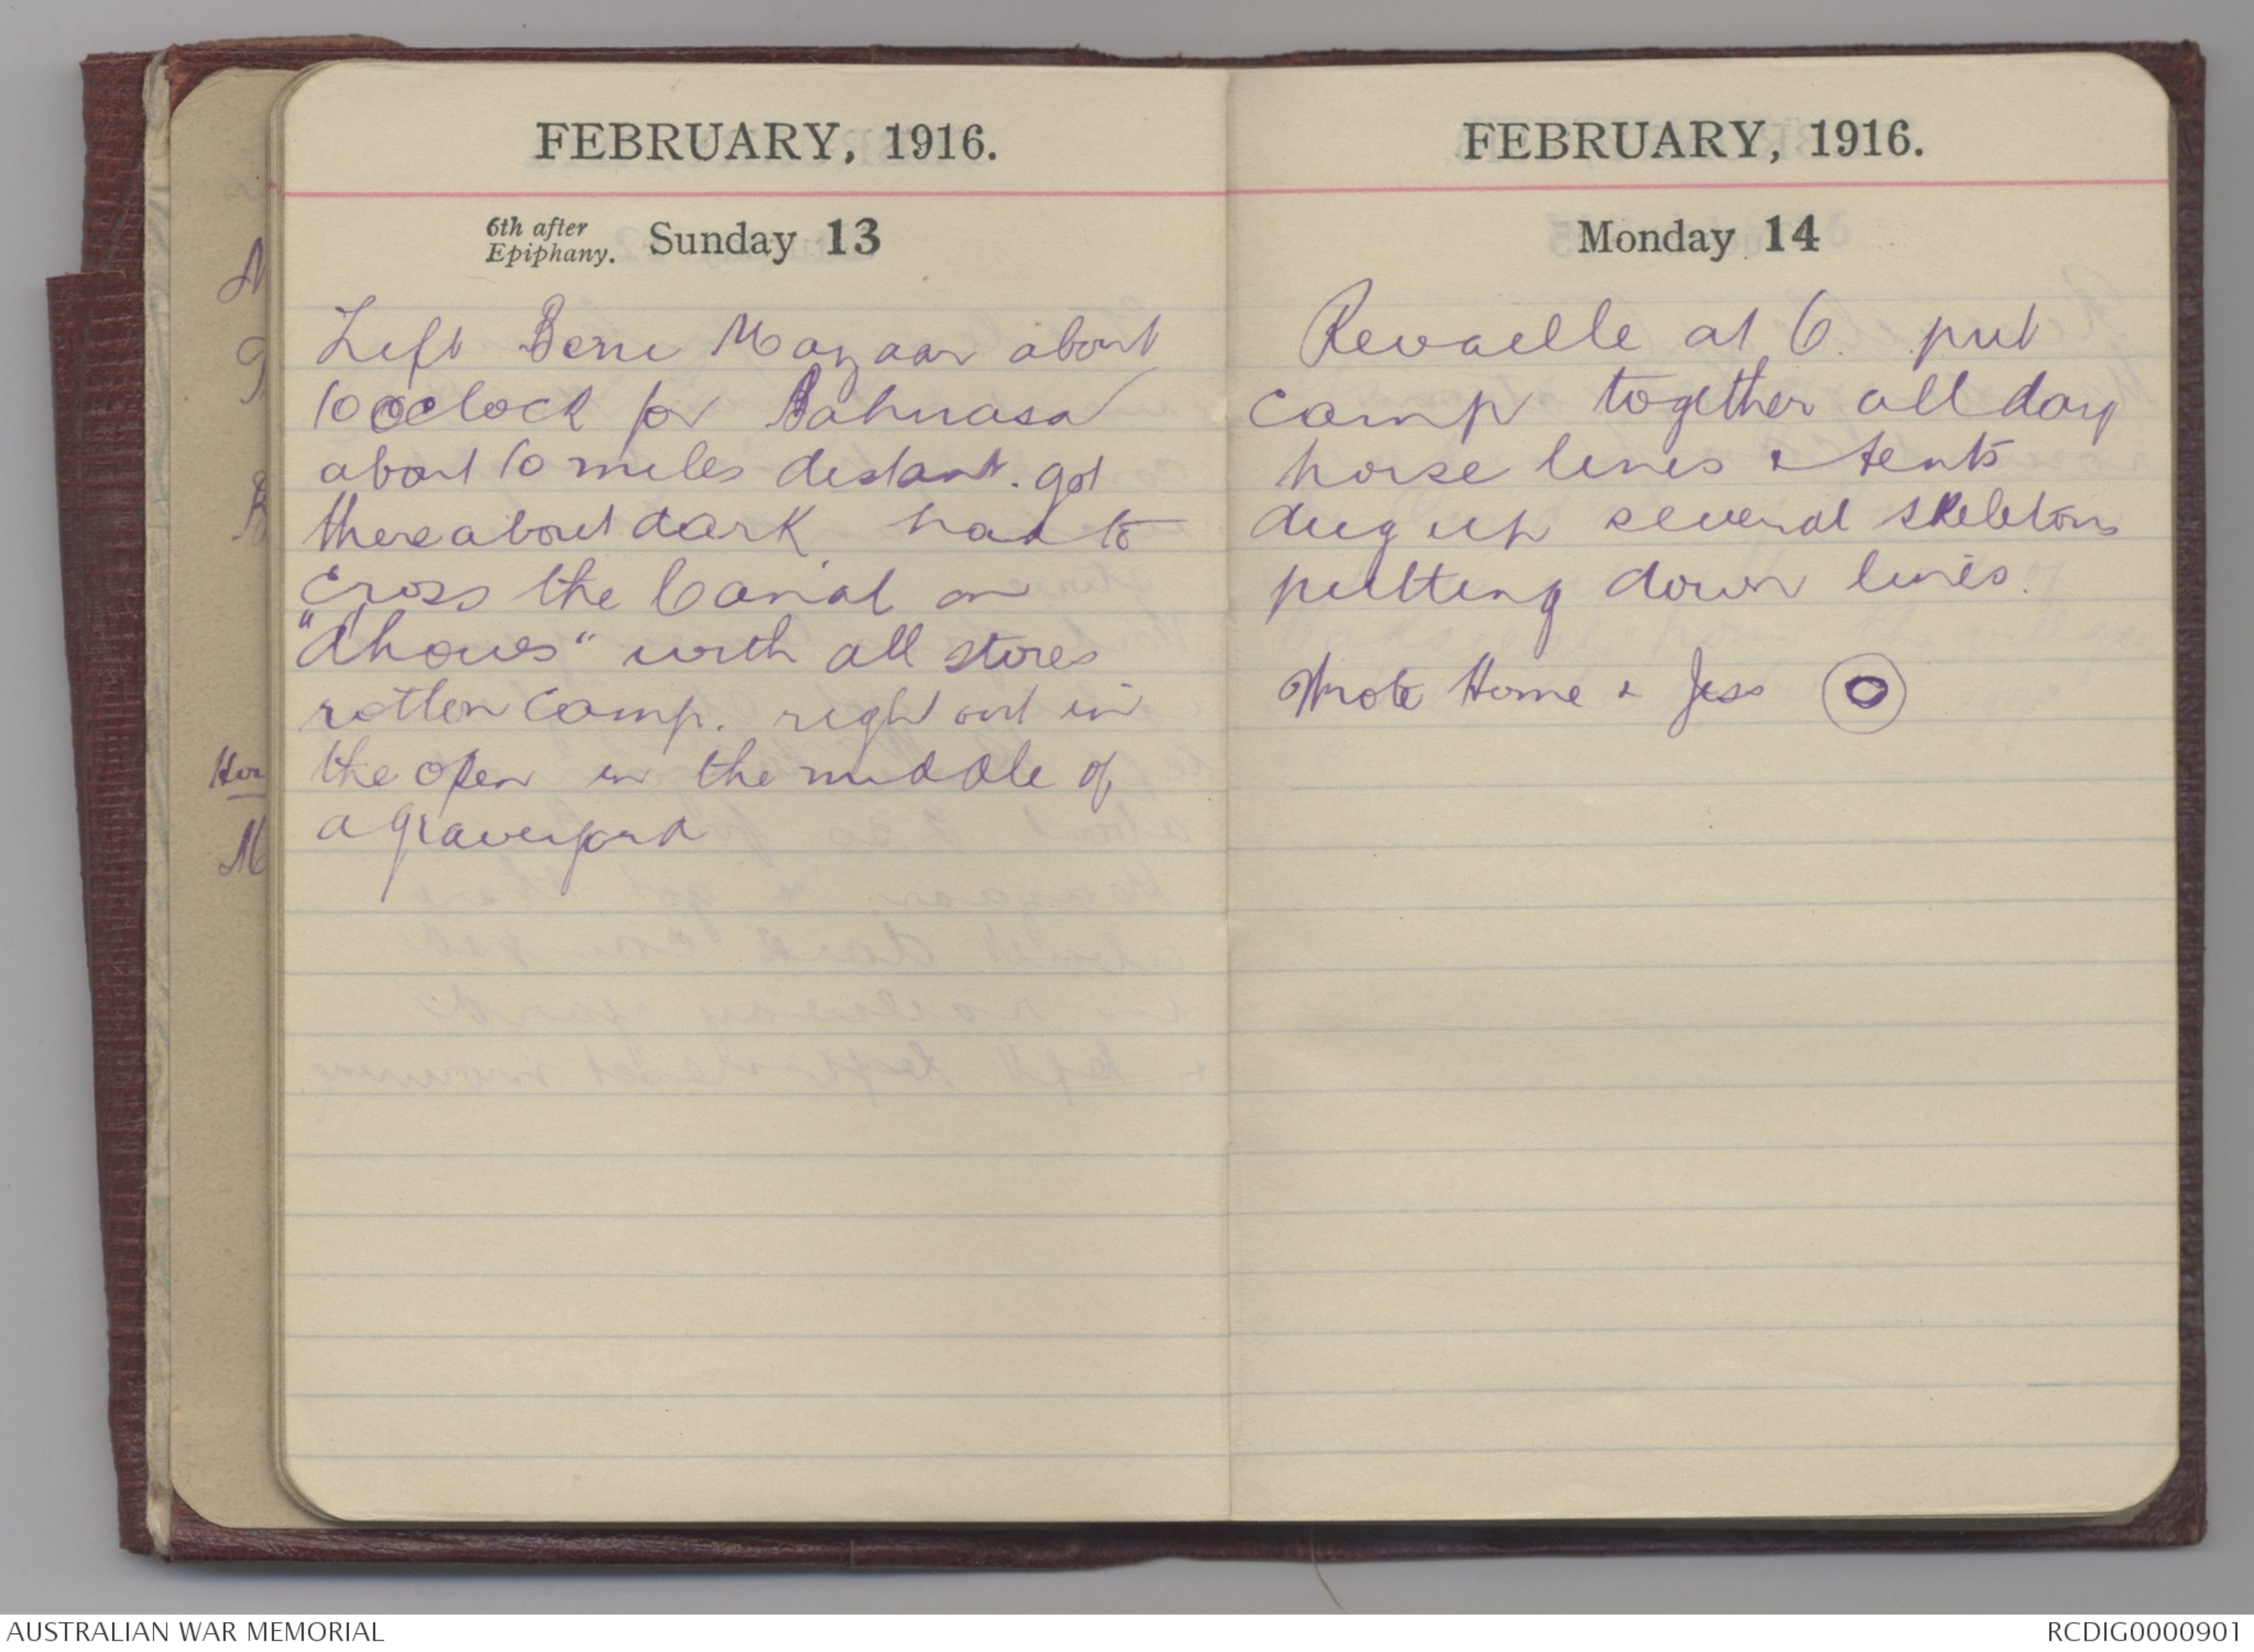 FEBRUARY, 1916.
6th after Epiphany. Sunday 13
Left Beni Mazaar about
10 oclock for Bahnasa
about 10 miles distant. got
there about dark. had to
cross the Canal on
"dhows" with all stores
rotten camp. right out in
the open in the middle of
a graveyard
FEBRUARY, 1916.
Monday 14
Revaelle at 6. put
camp together all day
horse lines & tents
dug up several skeletons
putting down lines.
Wrote Home & Jess
AUSTRALIAN WAR MEMORIAL
RCDIG0000901